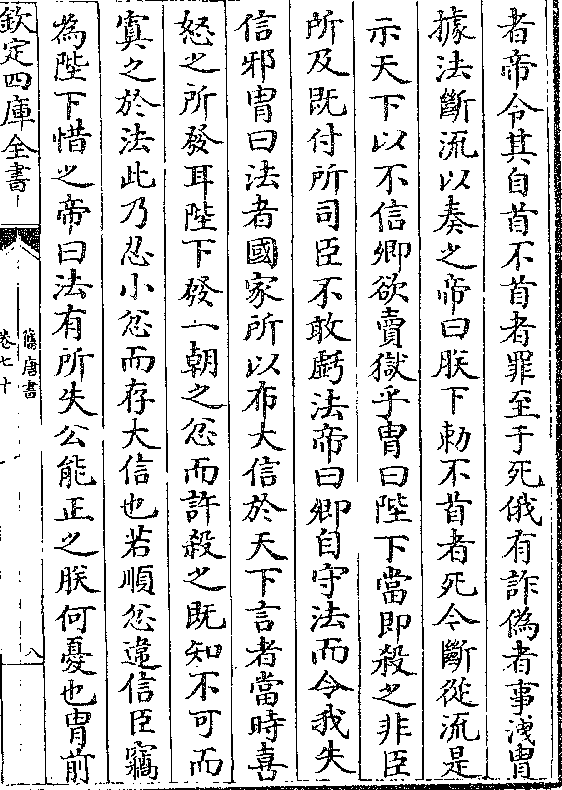 者帝令其自首不首者罪至于死俄有詐偽者事洩胄
據法斷流以奏之帝曰朕下勅不首者死今斷從流是
示天下以不信卿欲賣獄乎胄曰陛下當即殺之非臣
所及既付所司臣不敢虧法帝曰卿自守法而令我失
信邪胄曰法者國家所以布大信於天下言者當時喜
怒之所發耳陛下發一朝之忿而許殺之既知不可而
寘之於法此乃忍小忿而存大信也若順忿違信臣竊
為陛下惜之帝曰法有所失公能正之朕何憂也胄前
欽定四庫全書
舊唐書
卷七十
八